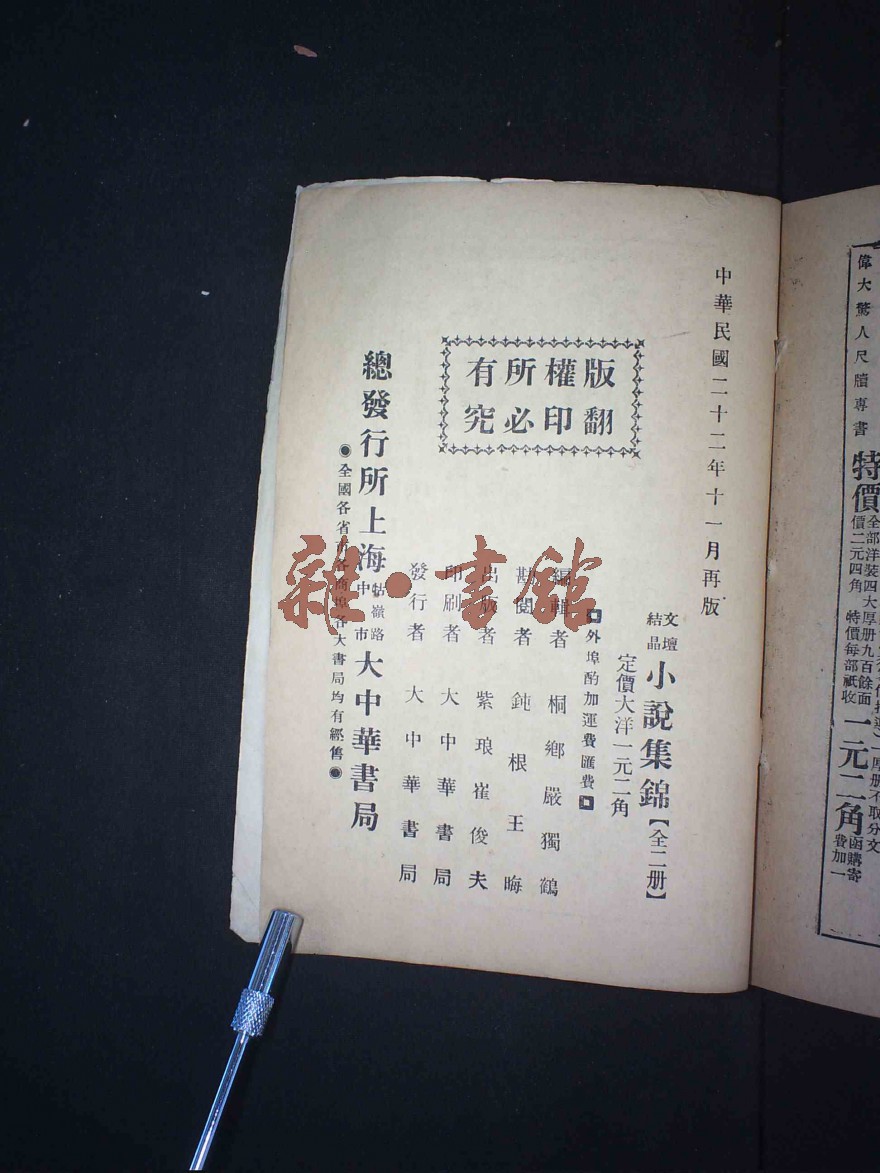 中華民國二十二年十一月再版
版權所有
翻印必究
文壇結晶 小說集錦【全二册】
定價大洋一元二角
外埠酌加運費匯費
編輯者 桐鄉嚴獨鶴
校閱者 鈍根王晦
出版者 紫琅崔俊夫
印刷者 大中華書局
發行者 大中華書局
總發行所上海牯嶺路中市大中華書局
全國各省市各商埠各大書局均有經售
雜·書館
偉大驚人尺牘專書
特價
全部洋裝四大厚册九百餘面
價二元四角 特價每部祇收
一元二角
函購寄費加一